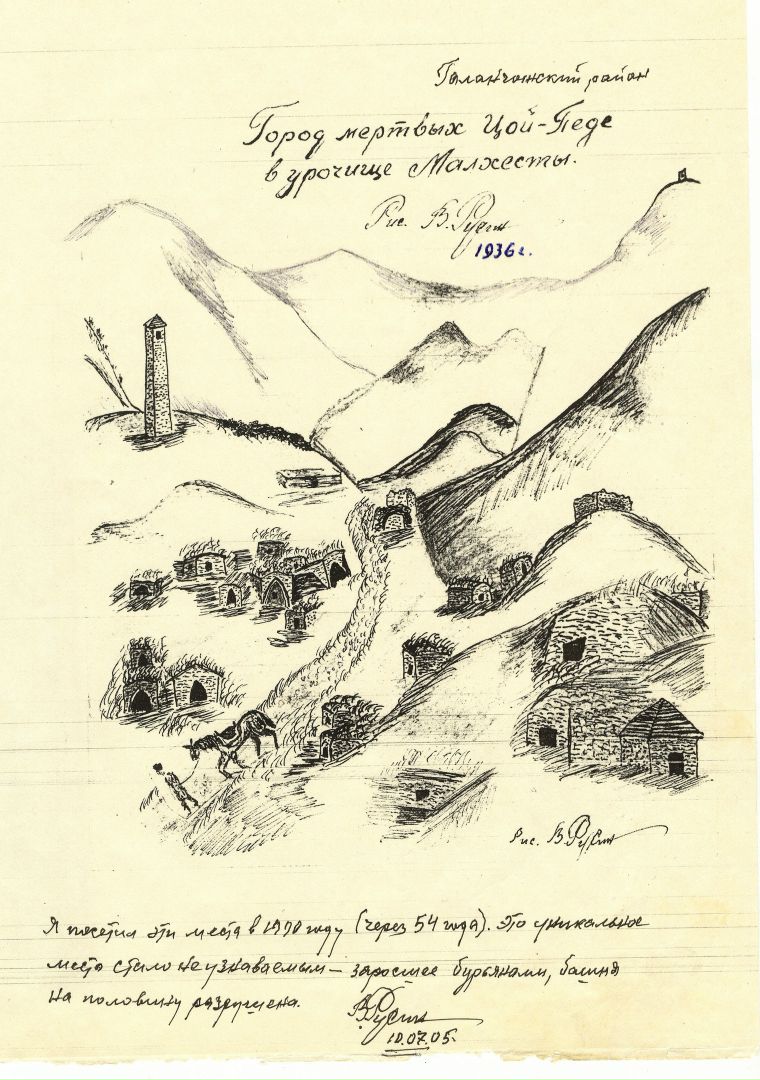 Галанчожский район
Город мертвых Цой-Педе
в урочище Малхесты.
Рис. В. Русин
1936г.
Рис. В. Русин
Я посетил эти места в 1990 году (через 54 года). Это уникальное
место стало неузнаваемым — заросшее бурьянами, башня
на половину разрушена.
В. Русин
10.07.05.